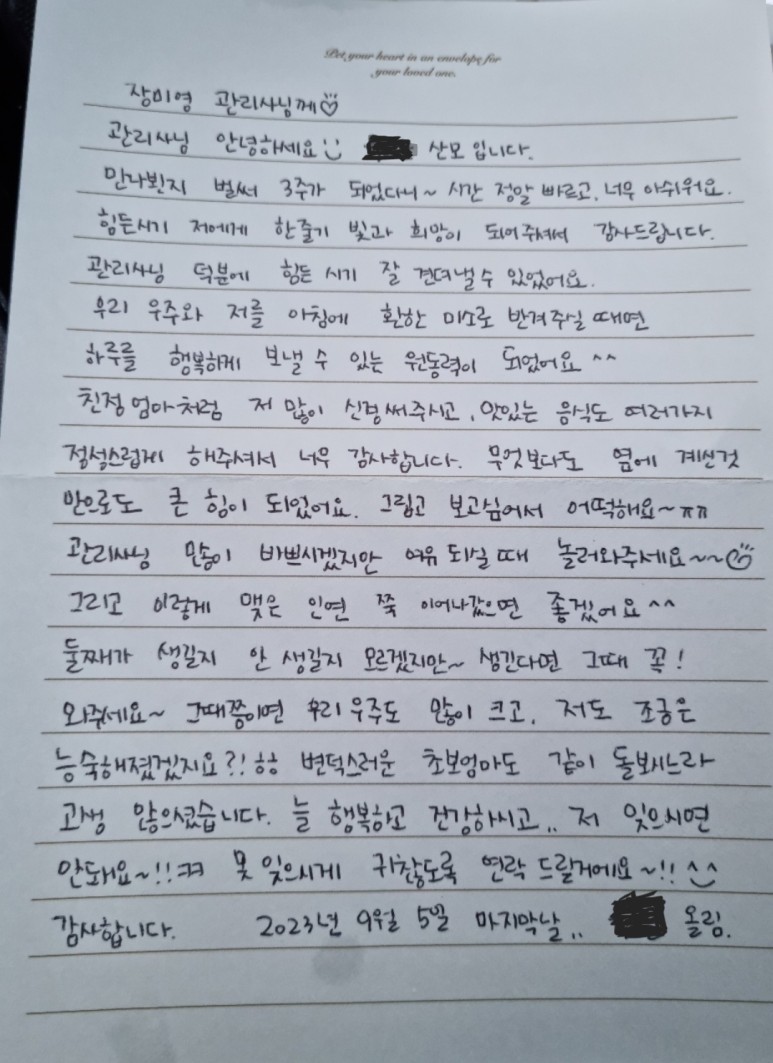 Put your heart in an envelope for
your loved one.
장미영 관리사님께♡
관리사님 안녕하세요 산모 입니다.
만나뵌지 벌써 3주가 되었다니~ 시간 정말 빠르고, 너무 아쉬워요.
힘든시기 저에게 한줄기 빛과 희망이 되어주셔서 감사드립니다.
관리사님 덕분에 힘든 시기 잘 견뎌낼 수 있었어요.
우리 우주와 저를 아침에 환한 미소로 반겨주실 때면
하루를 행복하게 보낼 수 있는 원동력이 되었어요 ^^
친정 엄마처럼 저 많이 신경써주시고, 맛있는 음식도 여러가지
정성스럽게 해주셔서 너무 감사합니다. 무엇보다도 옆에 계신것
만으로도 큰 힘이 되었어요. 그립고 보고싶어서 어떡해요~ㅠㅠ
관리사님 많이 바쁘시겠지만 여유 되실 때 놀러와주세요~~
그리고 이렇게 맺은 인연 쭉 이어나갔으면 좋겠어요^^
둘째가 생길지 안 생길지 모르겠지만~ 생긴다면 그때 꼭!
와주세요~ 그때쯤이면 우리 우주도 많이 크고, 저도 조금은
능숙해졌겠지요?! ㅎㅎ 변덕스러운 초보엄마도 같이 돌보시느라
고생 많으셨습니다. 늘 행복하고 건강하시고.. 저 잊으시면
안돼요~!! ㅋㅋ 못 잊으시게 귀찮도록 연락 드릴거에요~!! ^^
감사합니다. 2023년 9월 5일 마지막날.. 올림.